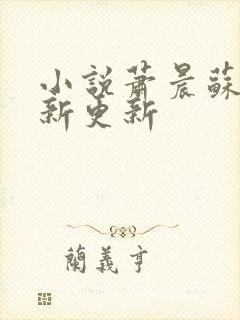 小說蕭晨蘇
新更新
蘭義亨